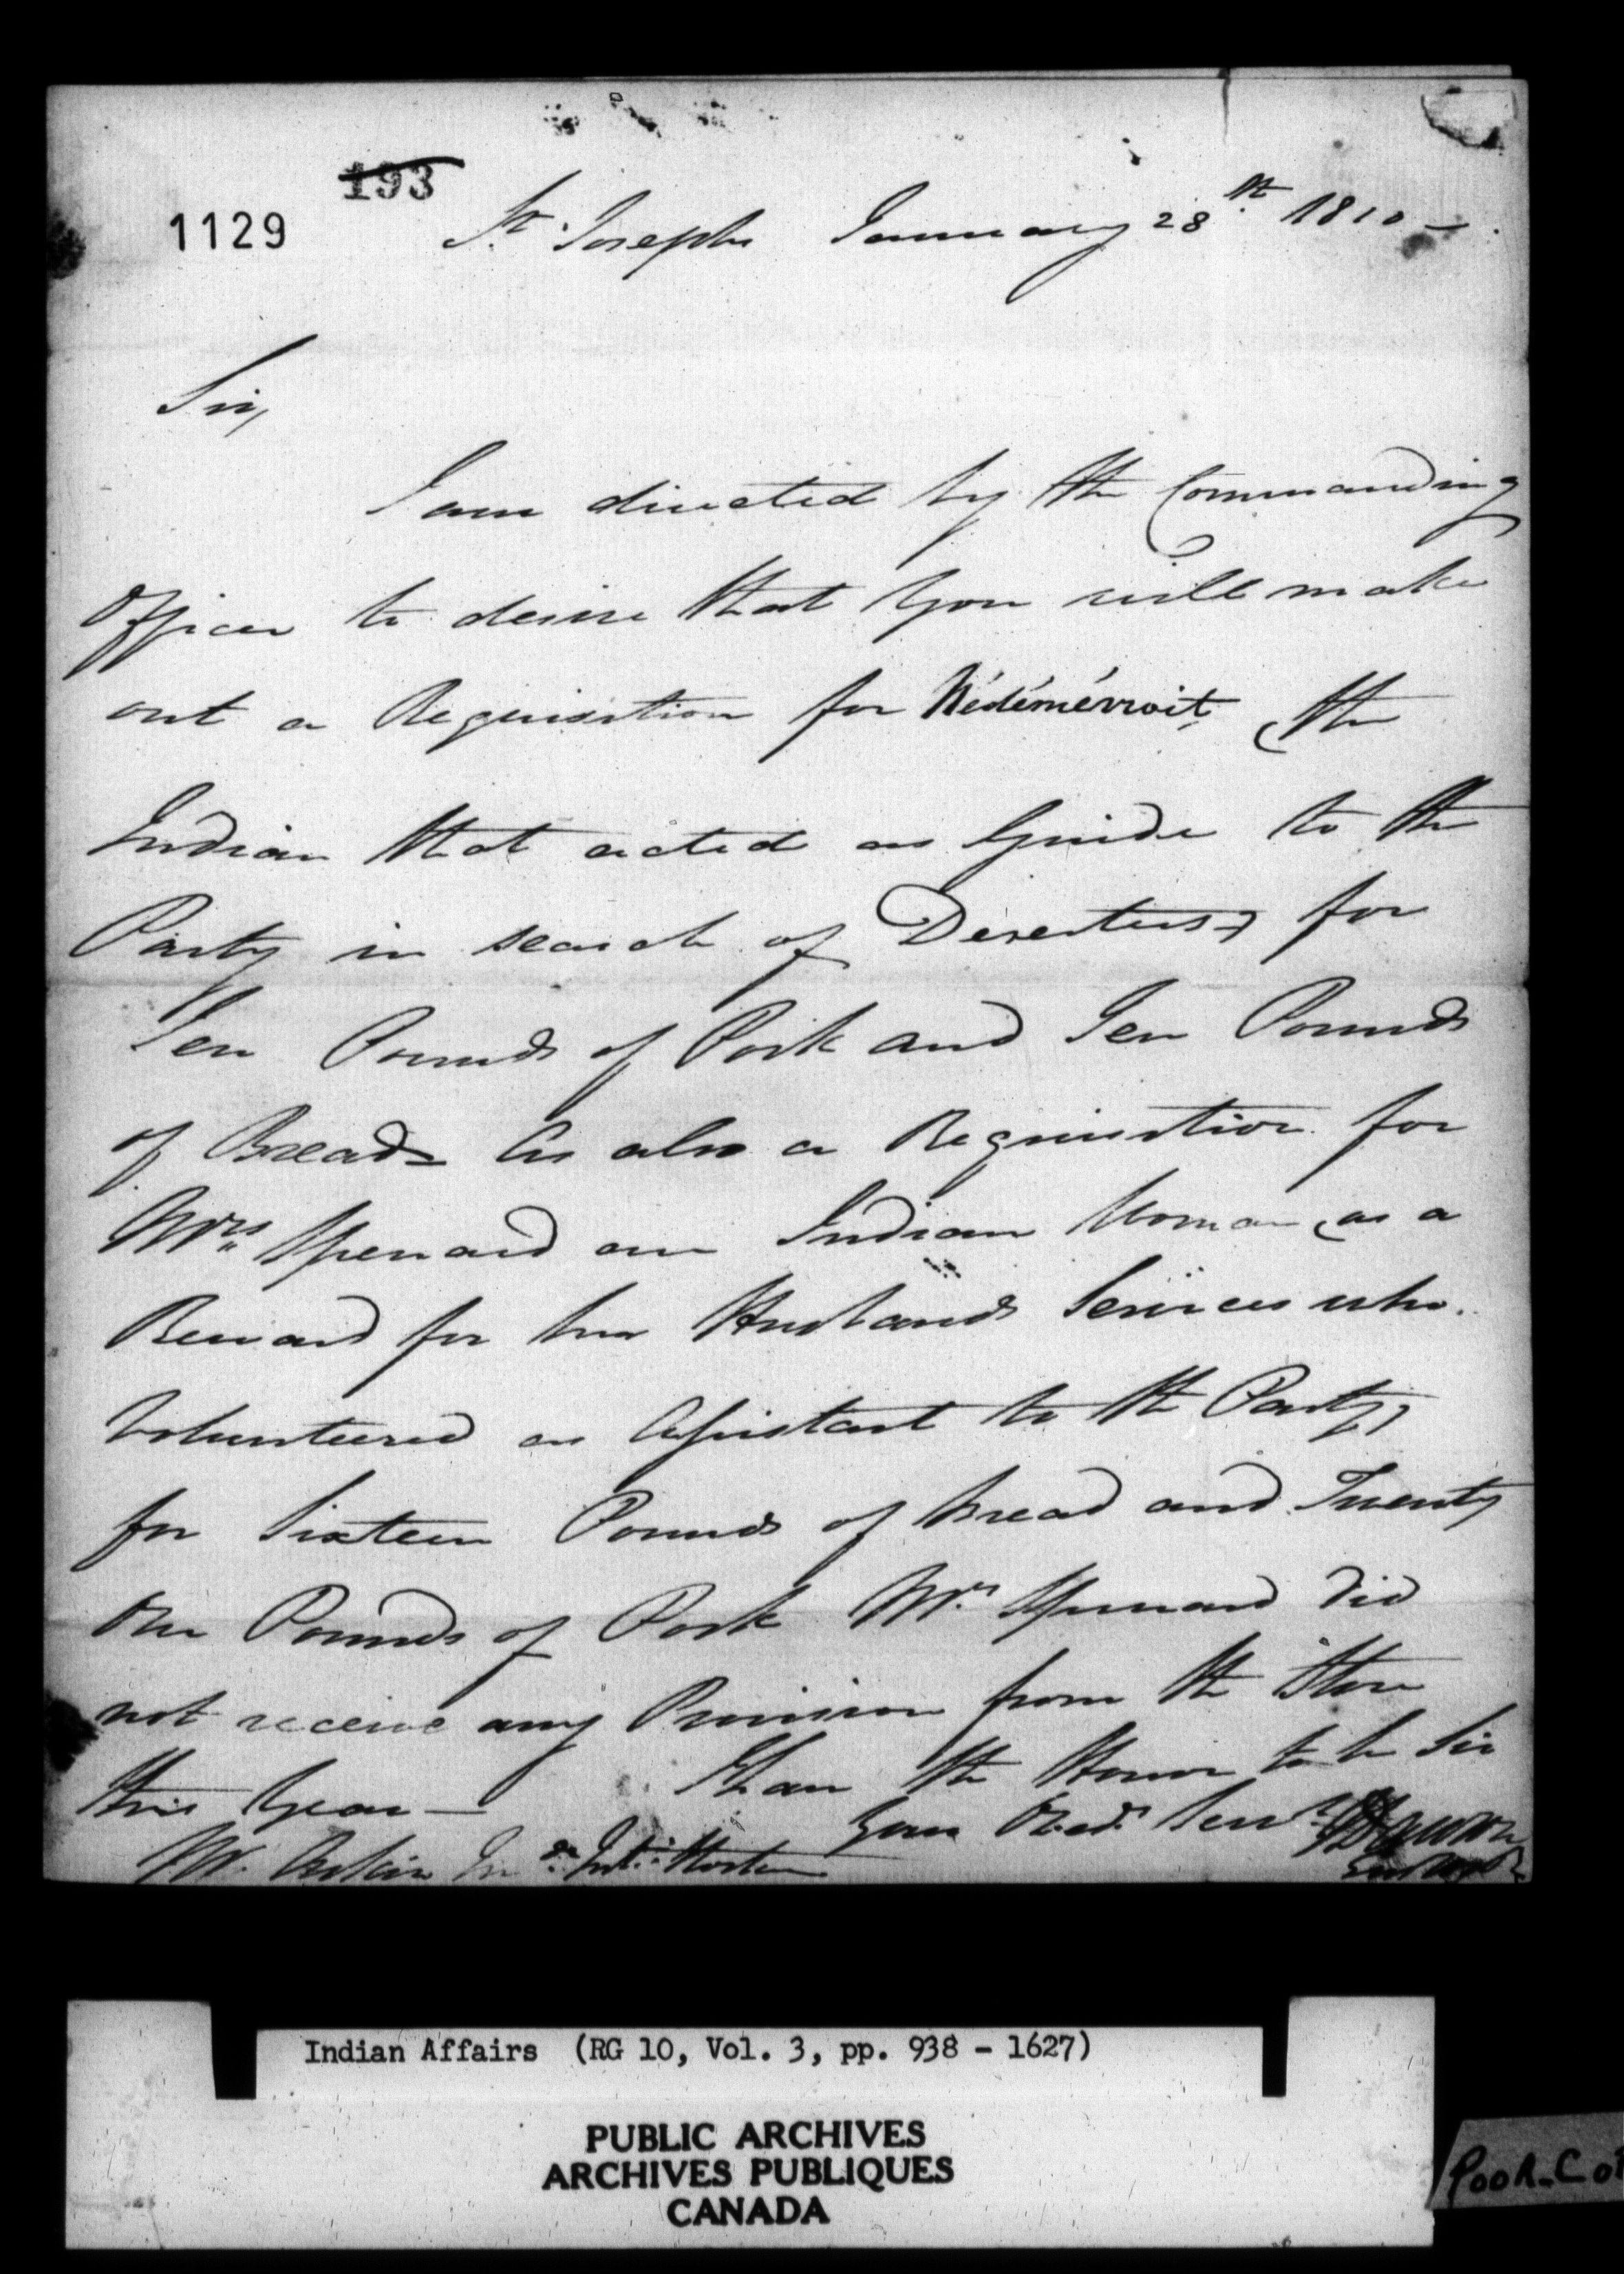 193
1129
St. Joseph January 28th 1810 —
Sir,
I am directed by the Commanding
Officer to desire that you will make
out a Requisition for Nédémérroit, the
Indian that acted as Guide to the
Party in search of Deserters, for
Ten Pounds of Pork and Ten Pounds
of Bread — As also a Requisition for
Mrs. Spenard an Indian Woman, as a
Reward for her Husbands Services who
Volunteered as Assistant to the Party,
for Sixteen Pounds of Bread and Twenty
One Pounds of Pork Mrs. Spenard did
not receive any Provision from the Store
this Year —
I have the Honor to be Sir
Your Obedt. Servt. Dawson
Mr. Askin Jnr.
Indian Affairs (RG 10, Vol. 3, pp. 938 - 1627)
PUBLIC ARCHIVES
ARCHIVES PUBLIQUES
CANADA